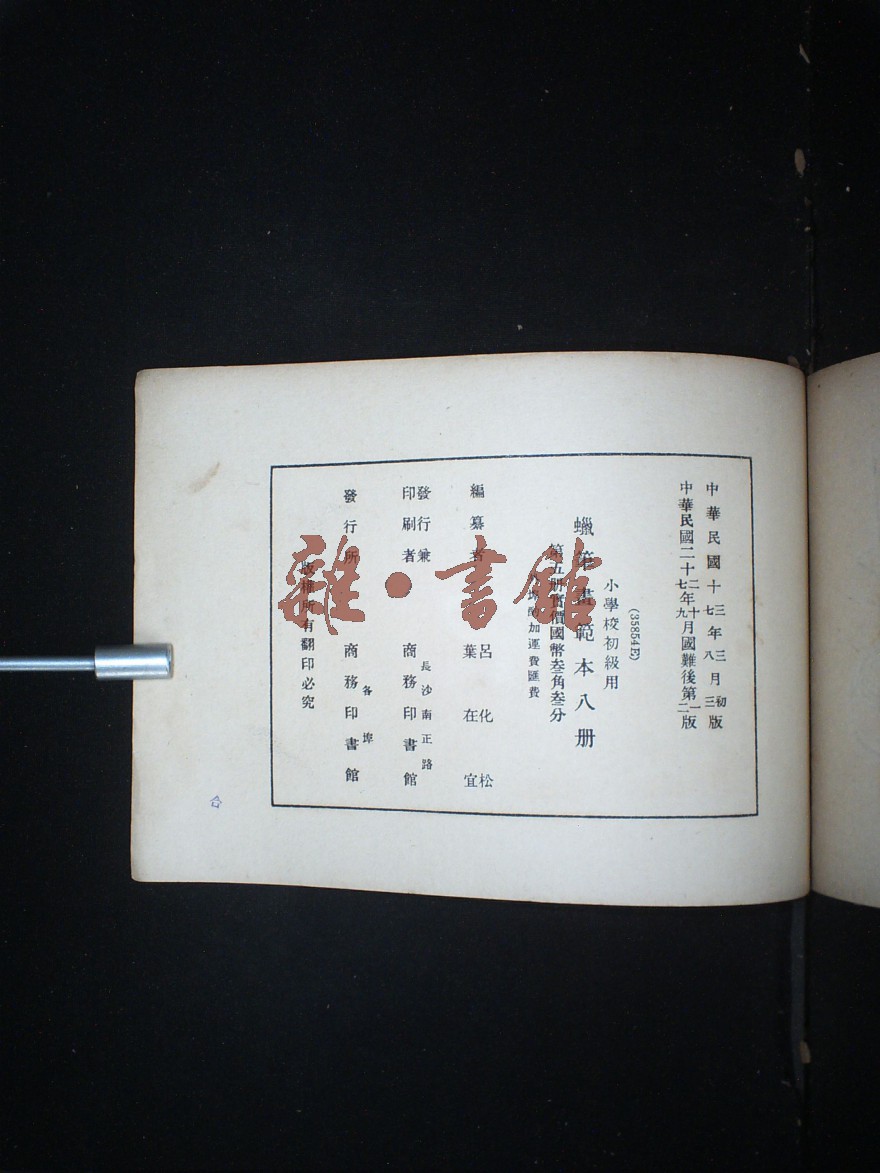 中華民國十三年三月初版
七八三
中華民國二十二年十月國難後第一版
七九二
(35854E)
小學校初級用
蠟筆畫範本八册
第五册實價國幣叁角叁分
埠酌加運費匯費
編纂者 呂化松
葉在宜
發行兼
印刷者
長沙南正路
商務印書館
發行所
各埠
商務印書館
版權所有翻印必究
雜·書館